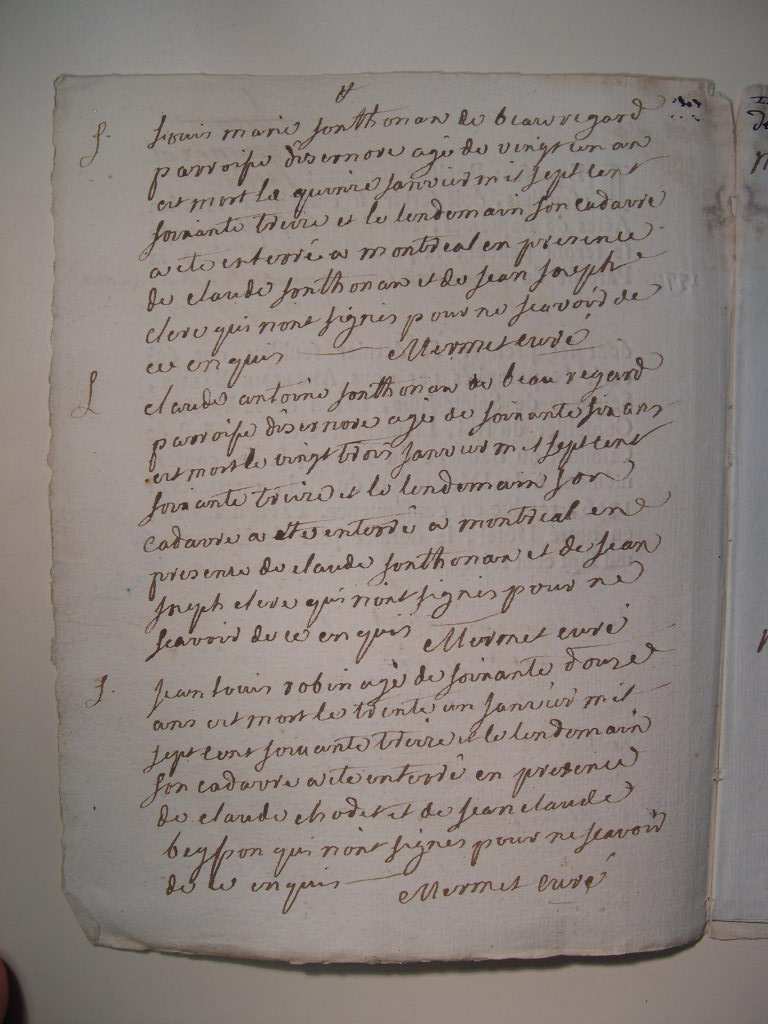 S. Louis marie sonthonax de beauregard
parroisse disernore agé de vingt un an
est mort le quinze janvier mil sept cent
soixante treize et le lendemain son cadavre
a ete enterré a montreal en presence
de claude sonthonax et de jean joseph
clerc qui n'ont signés pour ne scavoir de
ce enquis Mermet curé
S. claude antoine sonthonax de beauregard
parroisse disernore agé de soixante six ans
est mort le vingt trois janvier mil sept cent
soixante treize et le lendemain son
cadavre a ete enterré a montreal en
presence de claude sonthonax et de jean
joseph clerc qui n'ont signés pour ne
scavoir de ce enquis Mermet curé
S. jean louis robin agé de soixante douze
ans est mort le trente un janvier mil
sept cent soixante treize et le lendemain
son cadavre a ete enterré en presence
de claude chodet et de jean claude
beysson qui n'ont signés pour ne scavoir
de ce enquis Mermet curé